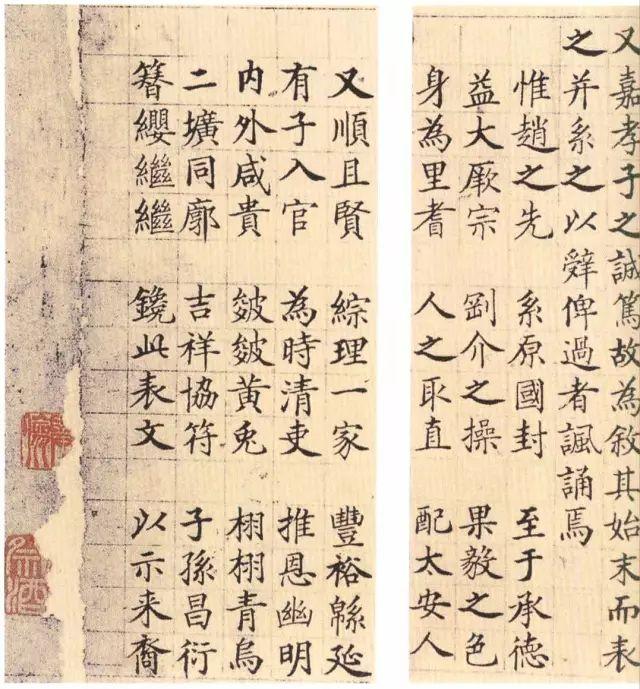 又嘉孝子之誠篤故為敘其始末而表
之并系之以辤俾過者諷誦焉
惟趙之先 系原國封 至于承德
益大厥宗 剛介之操 果毅之色
身為里耆 人之取直 配太安人
又順且賢 綜理一家 豐裕緜延
有子入官 為時清吏 推恩幽明
内外咸貴 皴皴黄兔 栩栩青烏
二壙同廓 吉祥協符 子孫昌衍
簪纓繼繼 鑱此表文 以示来裔